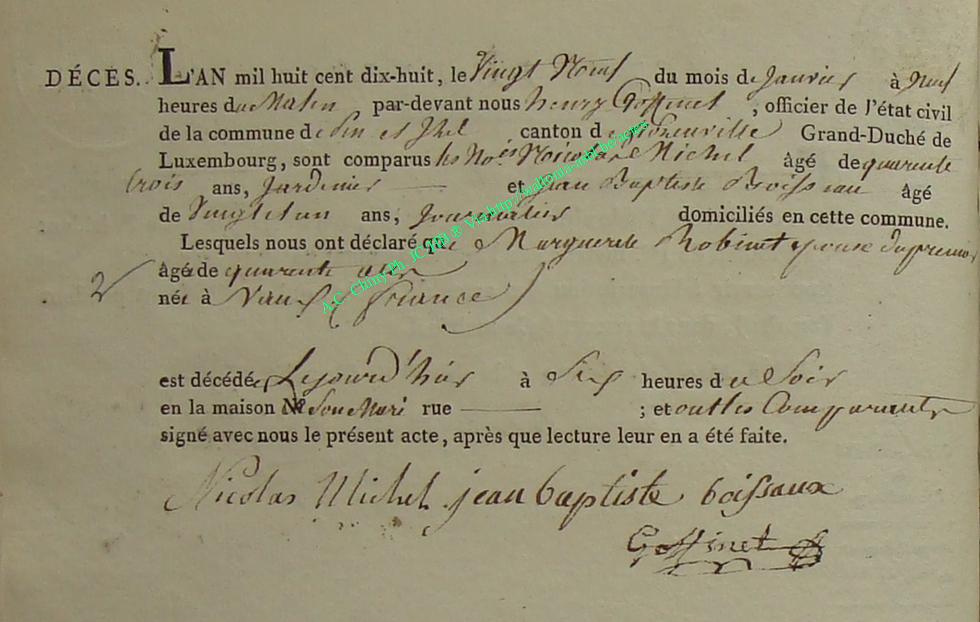 DÉCÈS. L'AN mil huit cent dix-huit, le Vingt Neuf du mois de Janvier à Neuf
heures du Matin par-devant nous henry Goffinet, officier de l'état civil
de la commune de Pin et Izel canton de florenville Grand-Duché de
Luxembourg, sont comparus les Nicolas Michel âgé de quarente
trois ans, Jardinier et jean Baptiste Boisseau âgé
de Vingt et un ans, Journalier domiciliés en cette commune.
Lesquels nous ont déclaré que Marguerite Robinet epouse du premier
âgée de quarente ans
2
née à Vaux france
est décédée Le jourd'hier à Six heures du Soir
en la maison Son Mari rue ; et ont les Comparants
signé avec nous le présent acte, après que lecture leur en a été faite.
Nicolas Michel jean baptiste boissaux
Goffinet